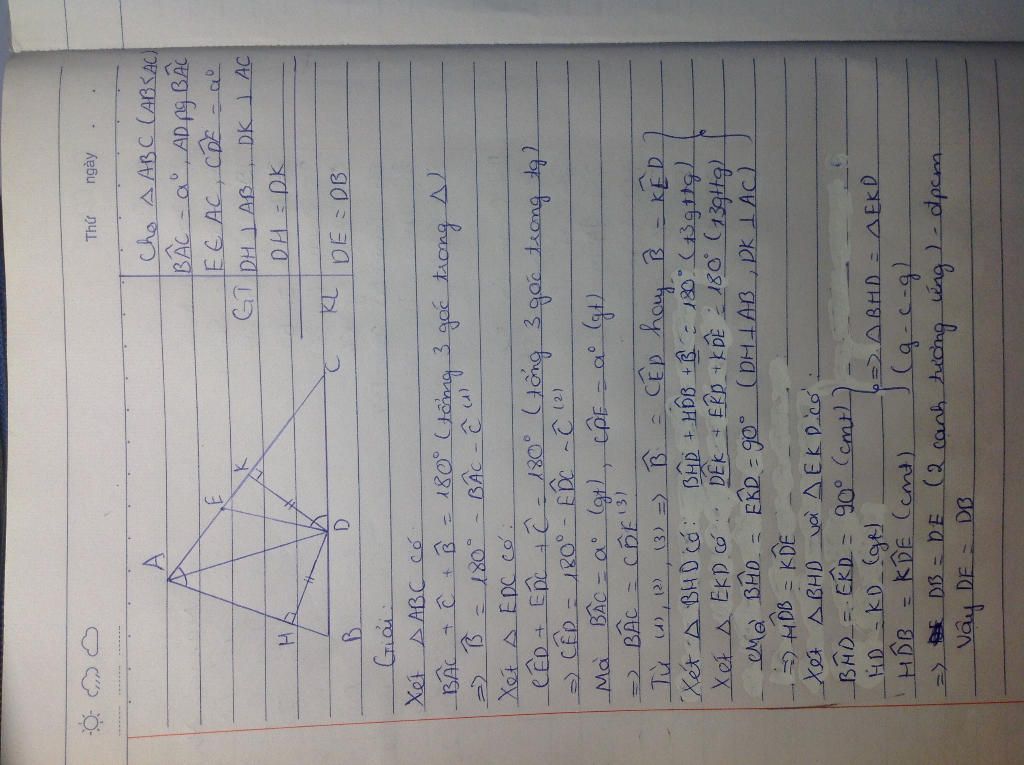 Thứ ngày
Cho △ ABC (AB<AC)
BÂC = a°, AD pg BÂC
E∈AC, CD̂E = a°
GT
DH⊥AB, DK⊥AC
DH = DK
KL
DE = DB
A
E
K
H
B
D
C
Giải:
Xét △ ABC có:
BÂC + Ĉ + B̂ = 180° (tổng 3 góc trong △)
=> B̂ = 180° - BÂC - Ĉ (1)
Xét △ EDC có:
CÊD + ED̂C + Ĉ = 180° (tổng 3 góc trong tg)
=> CÊD = 180° - ED̂C - Ĉ (2)
Mà BÂC = a° (gt), CD̂E = a° (gt)
=> BÂC = CD̂E (3)
Từ (1), (2), (3) => B̂ = CÊD hay B̂ = KÊD
Xét △ BHD có: BĤD + HD̂B + B̂ = 180° (t3gttg)
Xét △ EKD có: DÊK + EK̂D + KD̂E = 180° (t3gttg)
Mà BĤD = EK̂D = 90° (DH⊥AB, DK⊥AC)
=> HD̂B = KD̂E
Xét △ BHD và △ EKD có:
BĤD = EK̂D = 90° (cmt)
HD = KD (gt)
HD̂B = KD̂E (cmt)
=> △ BHD = △ EKD
(g-c-g)
=> DB = DE (2 cạnh tương ứng) - đpcm
Vậy DE = DB